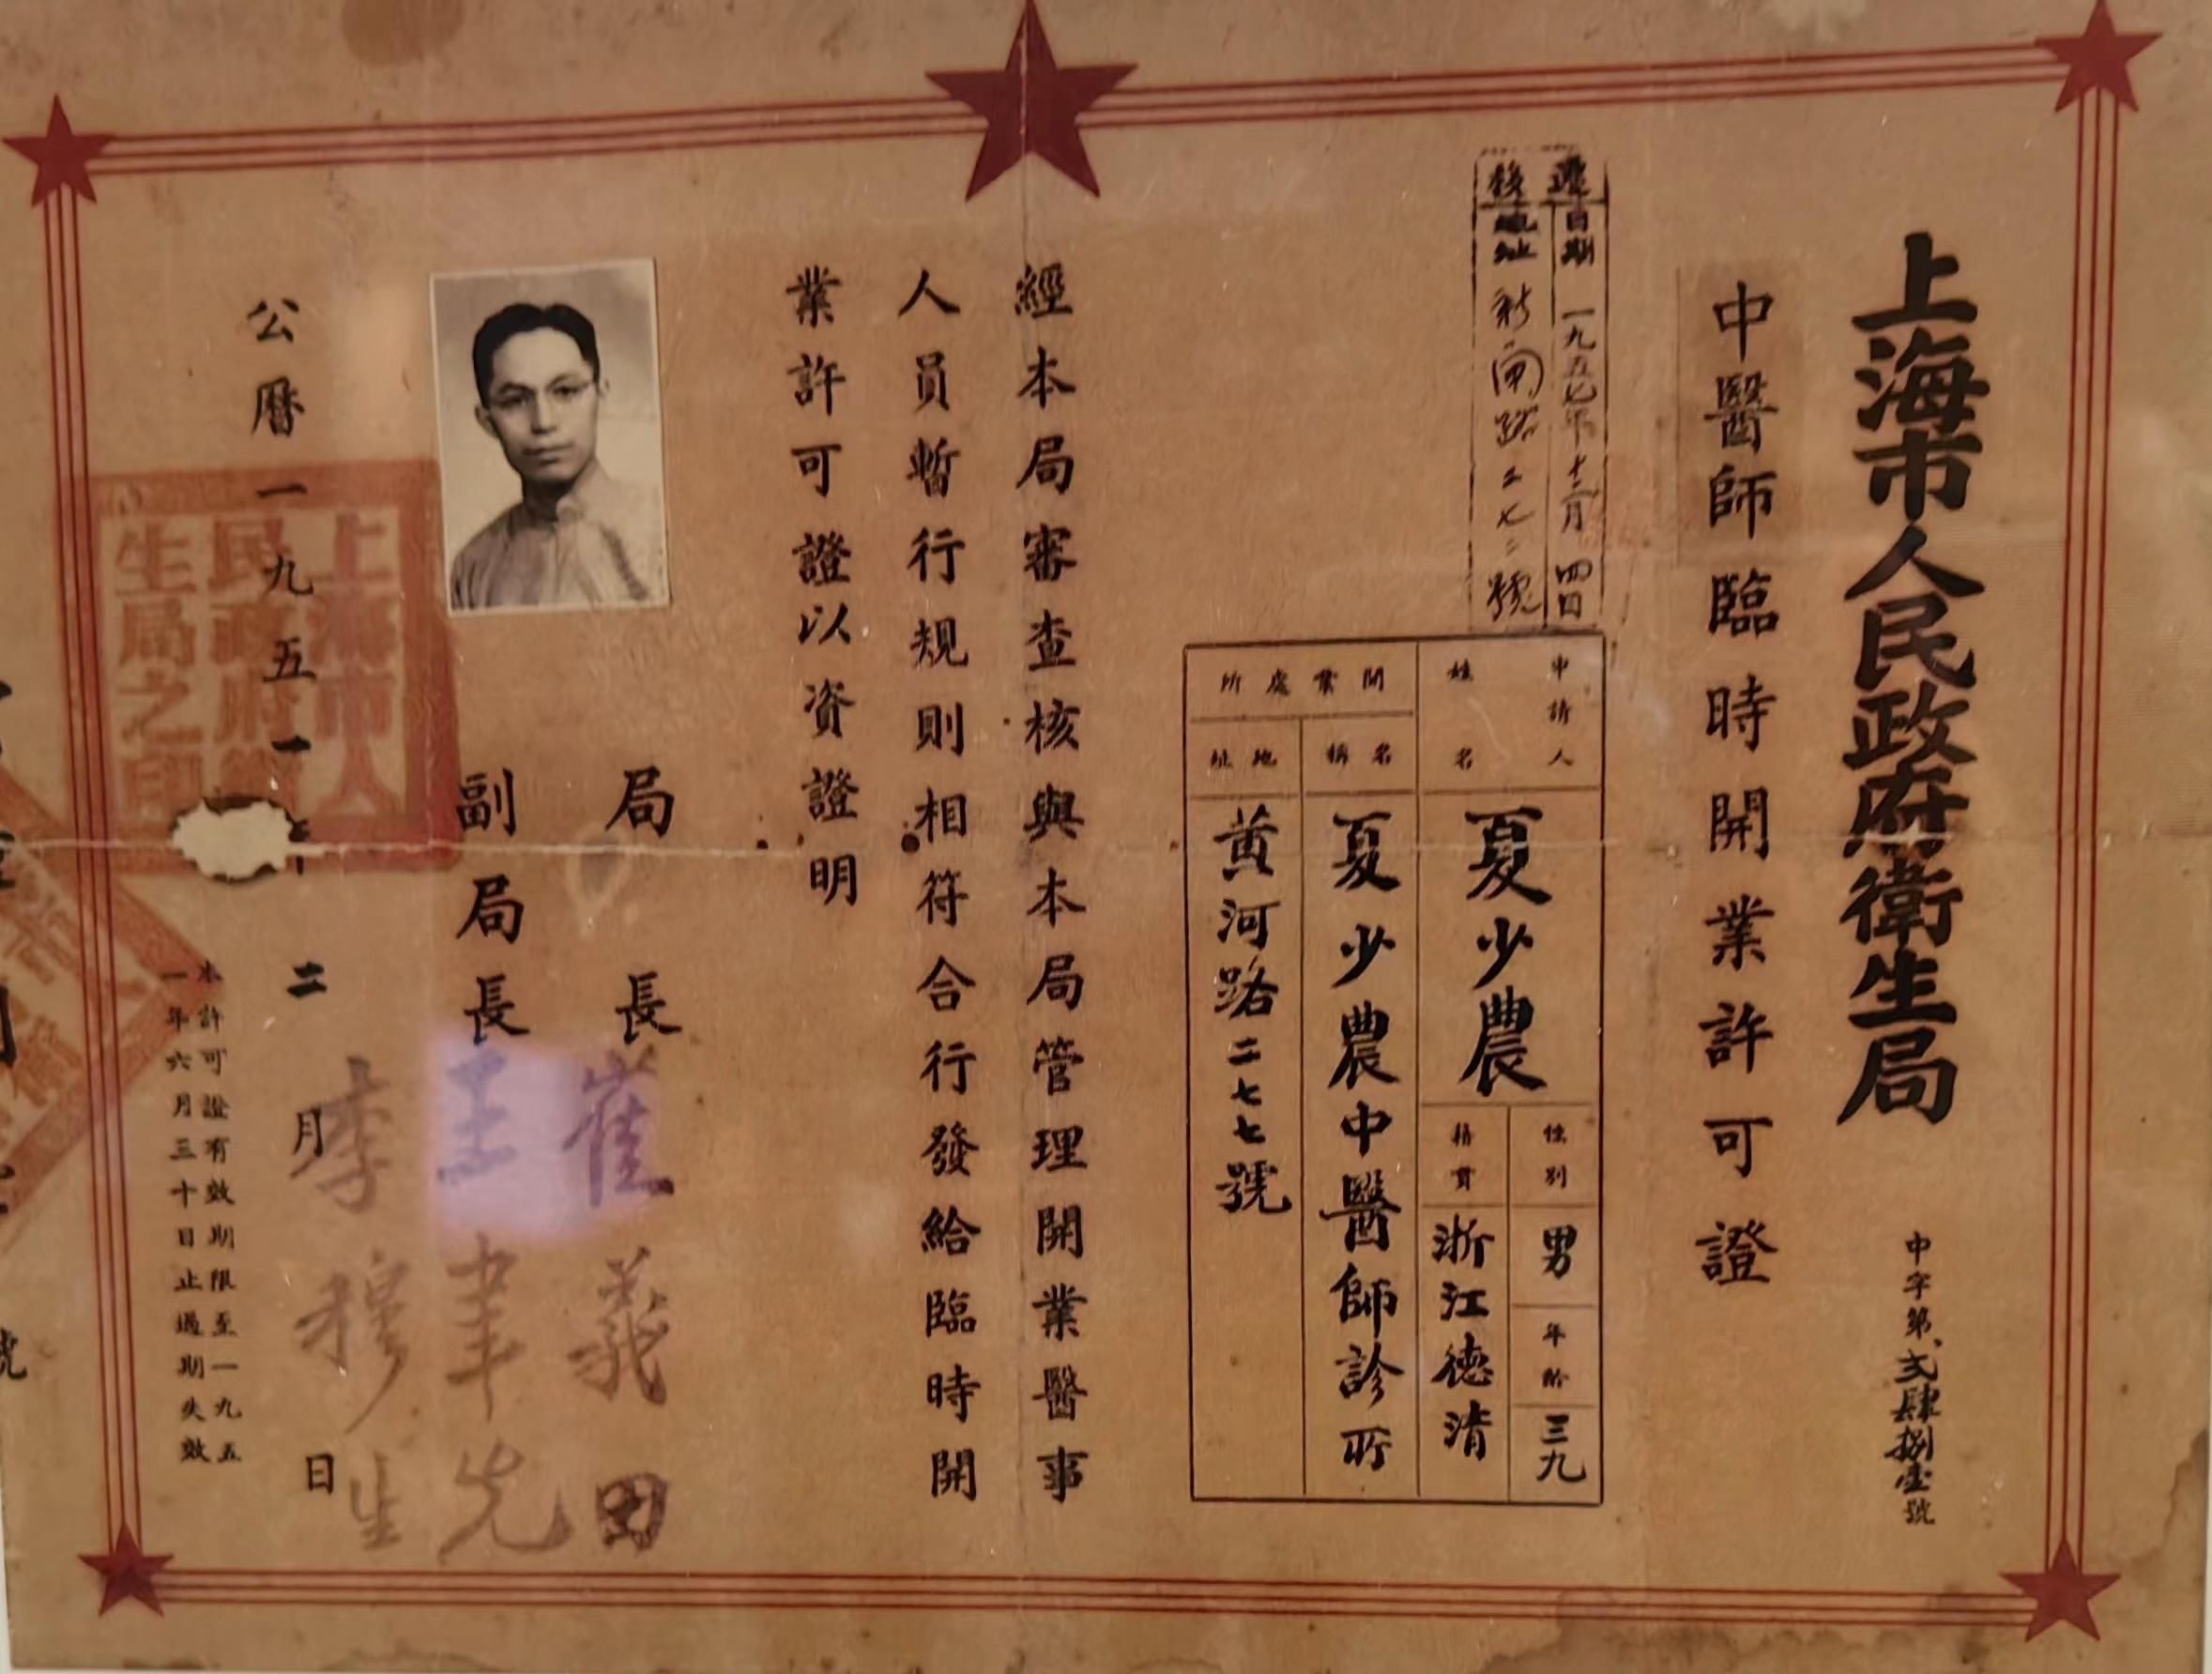 上海市人民政府衛生局
中字第弍肆捌壹號
中醫師臨時開業許可證
遷移
日期 一九五七年十二月四日
地址 新閘路二七二號
申請人
姓名
夏少農
性別
男
年齡
三九
籍貫
浙江德清
開業處所
名稱
夏少農中醫師診所
地址
黄河路二七七號
經本局審查核與本局管理開業醫事
人員暫行規則相符合行發給臨時開
業許可證以資證明
局長 崔義田
副局長 王聿先
李穆生
公曆一九五一年二月 日
上海市人
民政府衛
生局之印
本許可證有效期限至一九五
一年六月三十日止過期失效